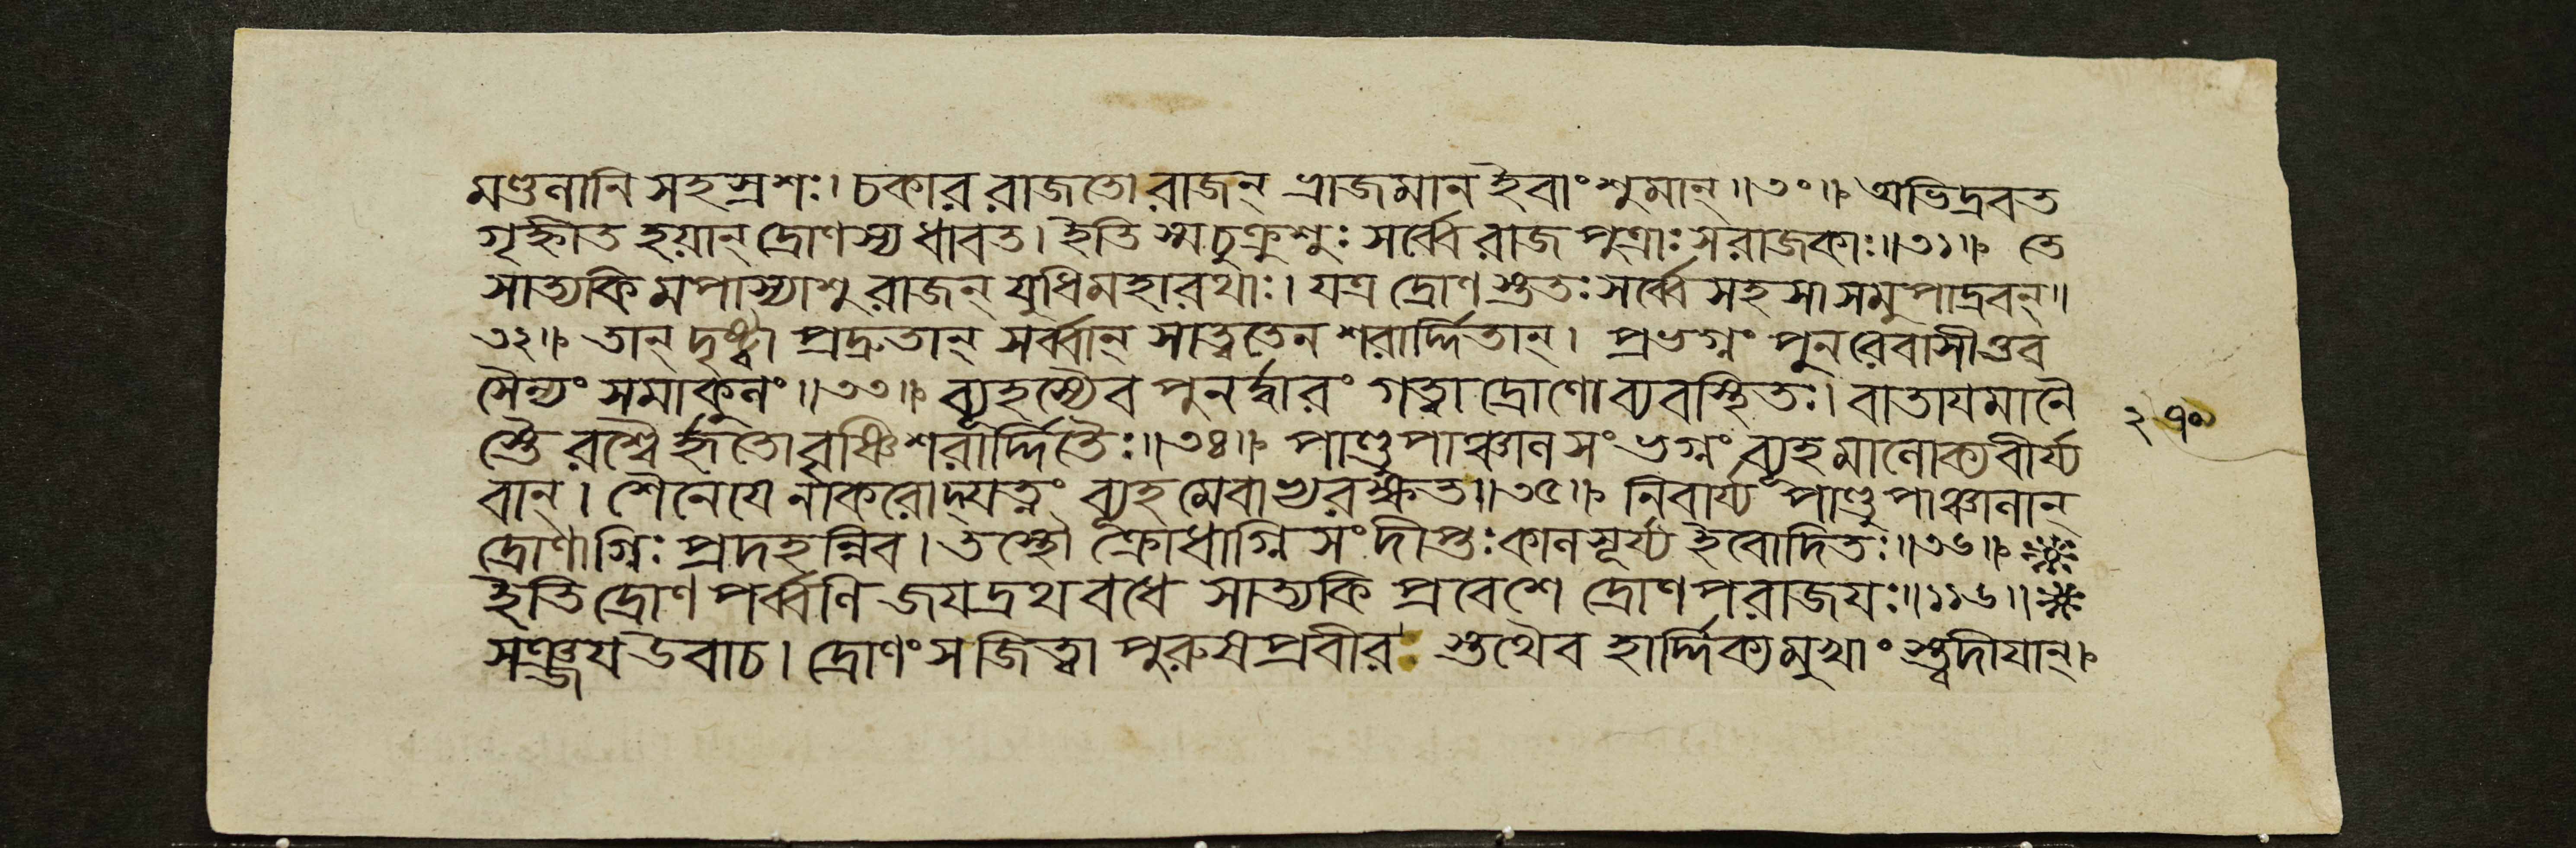 মণ্ডলানি সহস্রশঃ। চকার রাজতো রাজন্ ভ্রাজমান ইবাংশুমান্॥৩০॥ অভিদ্রবত
গৃহ্নীত হয়ান্ দ্রোণস্য ধাবত। ইতি স্ম চুক্রুশুঃ সর্ব্বে রাজপুত্রাঃ সরাজকাঃ॥৩১॥ তে
সাত্যকিমপাস্যাশু রাজন্ যুধি মহারথাঃ। যত্র দ্রোণস্ততঃ সর্ব্বে সহসা সমুপাদ্রবন্॥
৩২॥ তান্ দৃষ্ট্বা প্রদ্রুতান্ সর্ব্বান্ সাত্বতেন শরার্দ্দিতান্। প্রভগ্নং পুনরেবাসীত্তব
সৈন্যং সমাকুলং॥৩৩॥ ব্যূহস্যৈব পুনর্দ্বারং গত্বা দ্রোণো ব্যবস্থিতঃ। বাতাযমানৈ
স্তৈরশ্বৈর্হৃতো বৃষ্ণিশরার্দ্দিতৈঃ॥৩৪॥ পাণ্ডুপাঞ্চালসংভগ্নং ব্যূহমালোক্য বীর্য্য
বান্। শৈনেযে নাকরোদ্যত্নং ব্যূহমেবাভ্যরক্ষত॥৩৫॥ নিবার্য্য পাণ্ডুপাঞ্চালান্
দ্রোণাগ্নিঃ প্রদহন্নিব। তস্থৌ ক্রোধাগ্নিসংদীপ্তঃ কালসূর্য্য ইবোদিতঃ॥৩৬॥
ইতি দ্রোণপর্ব্বণি জযদ্রথবধে সাত্যকিপ্রবেশে দ্রোণপরাজযঃ॥১১৬॥
সঞ্জয উবাচ। দ্রোণং স জিত্বা পুরুষপ্রবীরঃ স্তথৈব হার্দ্দিক্যমুখাংস্ত্বদীযান্।